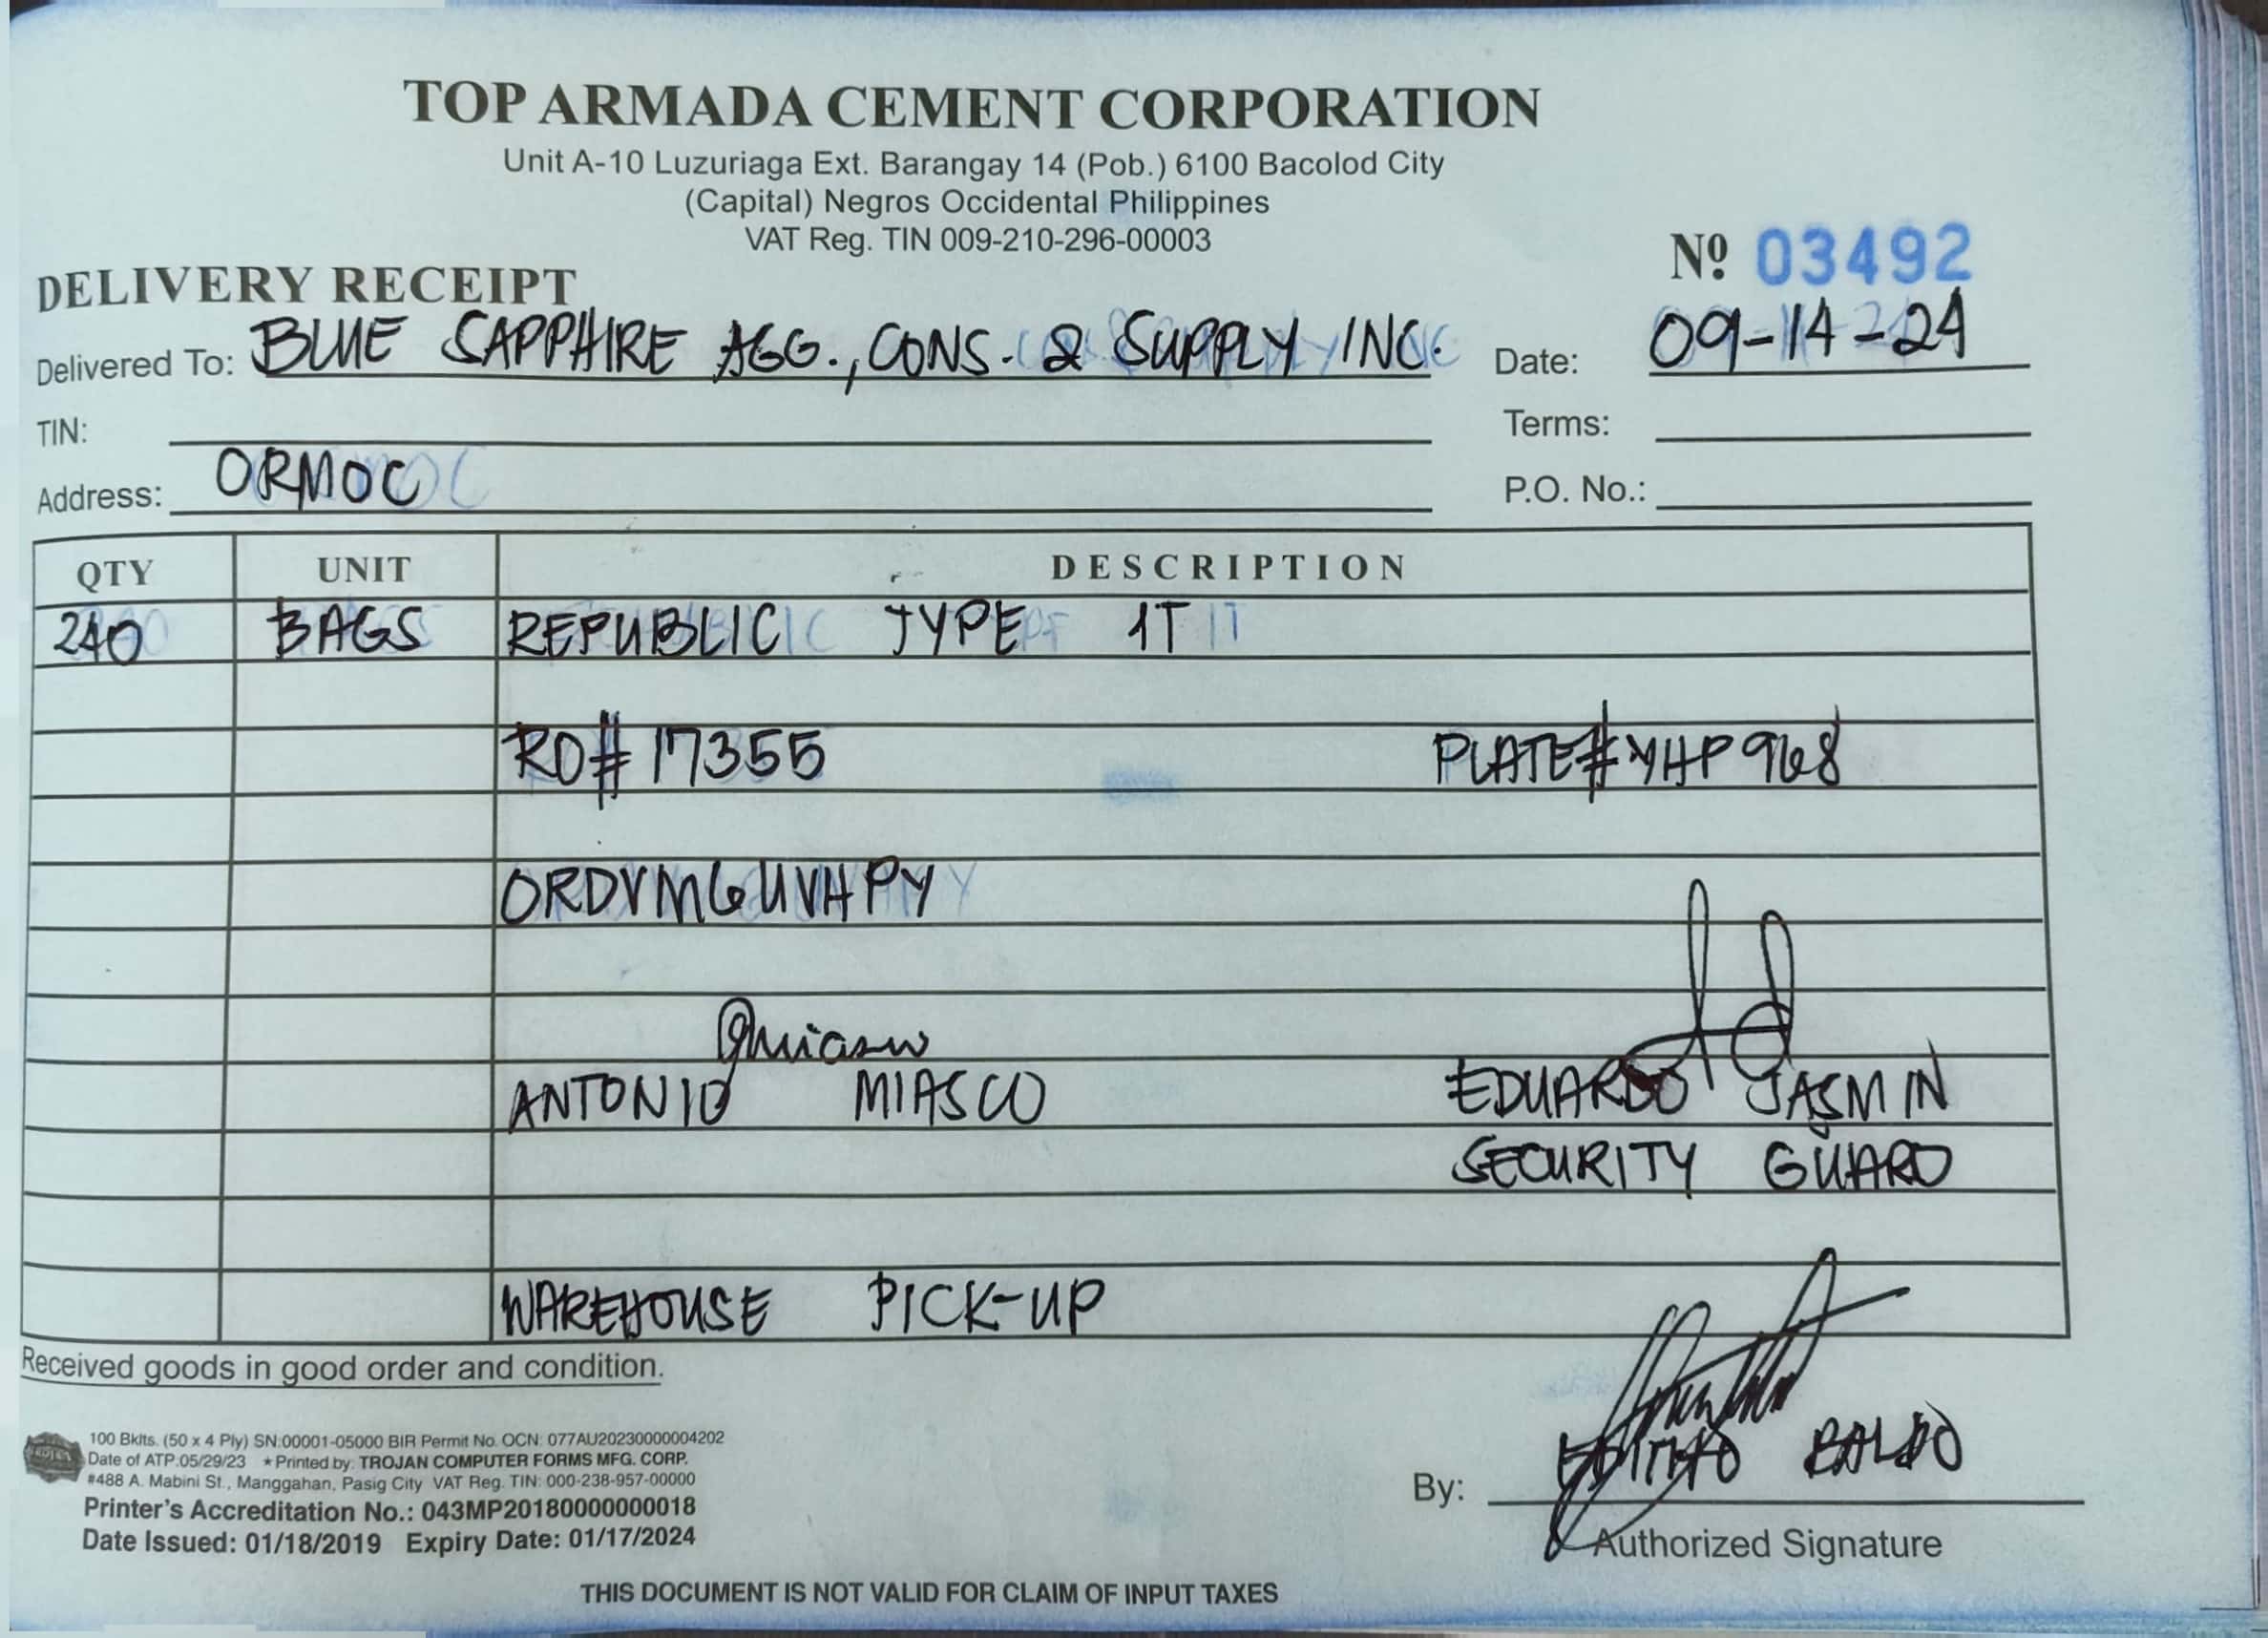 TOP ARMADA CEMENT CORPORATION
Unit A-10 Luzuriaga Ext. Barangay 14 (Pob.) 6100 Bacolod City
(Capital) Negros Occidental Philippines
VAT Reg. TIN 009-210-296-00003
Nº 03492
DELIVERY RECEIPT
Delivered To: BLUE SAPPHIRE AGG., CONS. & SUPPLY INC. Date: 09-14-24
TIN: Terms:
Address: ORMOC P.O. No.:
QTY UNIT DESCRIPTION
240 BAGS REPUBLIC TYPE 1T
RO# 17355 PLATE# YHP 968
ORDVMGUVHPY
ANTONIO MIASCO EDUARDO JASMIN
SECURITY GUARD
WAREHOUSE PICK-UP
Received goods in good order and condition.
100 Bklts. (50 x 4 Ply) SN:00001-05000 BIR Permit No. OCN: 077AU20230000004202
Date of ATP:05/29/23 ★Printed by: TROJAN COMPUTER FORMS MFG. CORP.
#488 A. Mabini St., Manggahan, Pasig City VAT Reg. TIN: 000-238-957-00000
Printer's Accreditation No.: 043MP20180000000018
Date Issued: 01/18/2019 Expiry Date: 01/17/2024
By: BALDO
Authorized Signature
THIS DOCUMENT IS NOT VALID FOR CLAIM OF INPUT TAXES